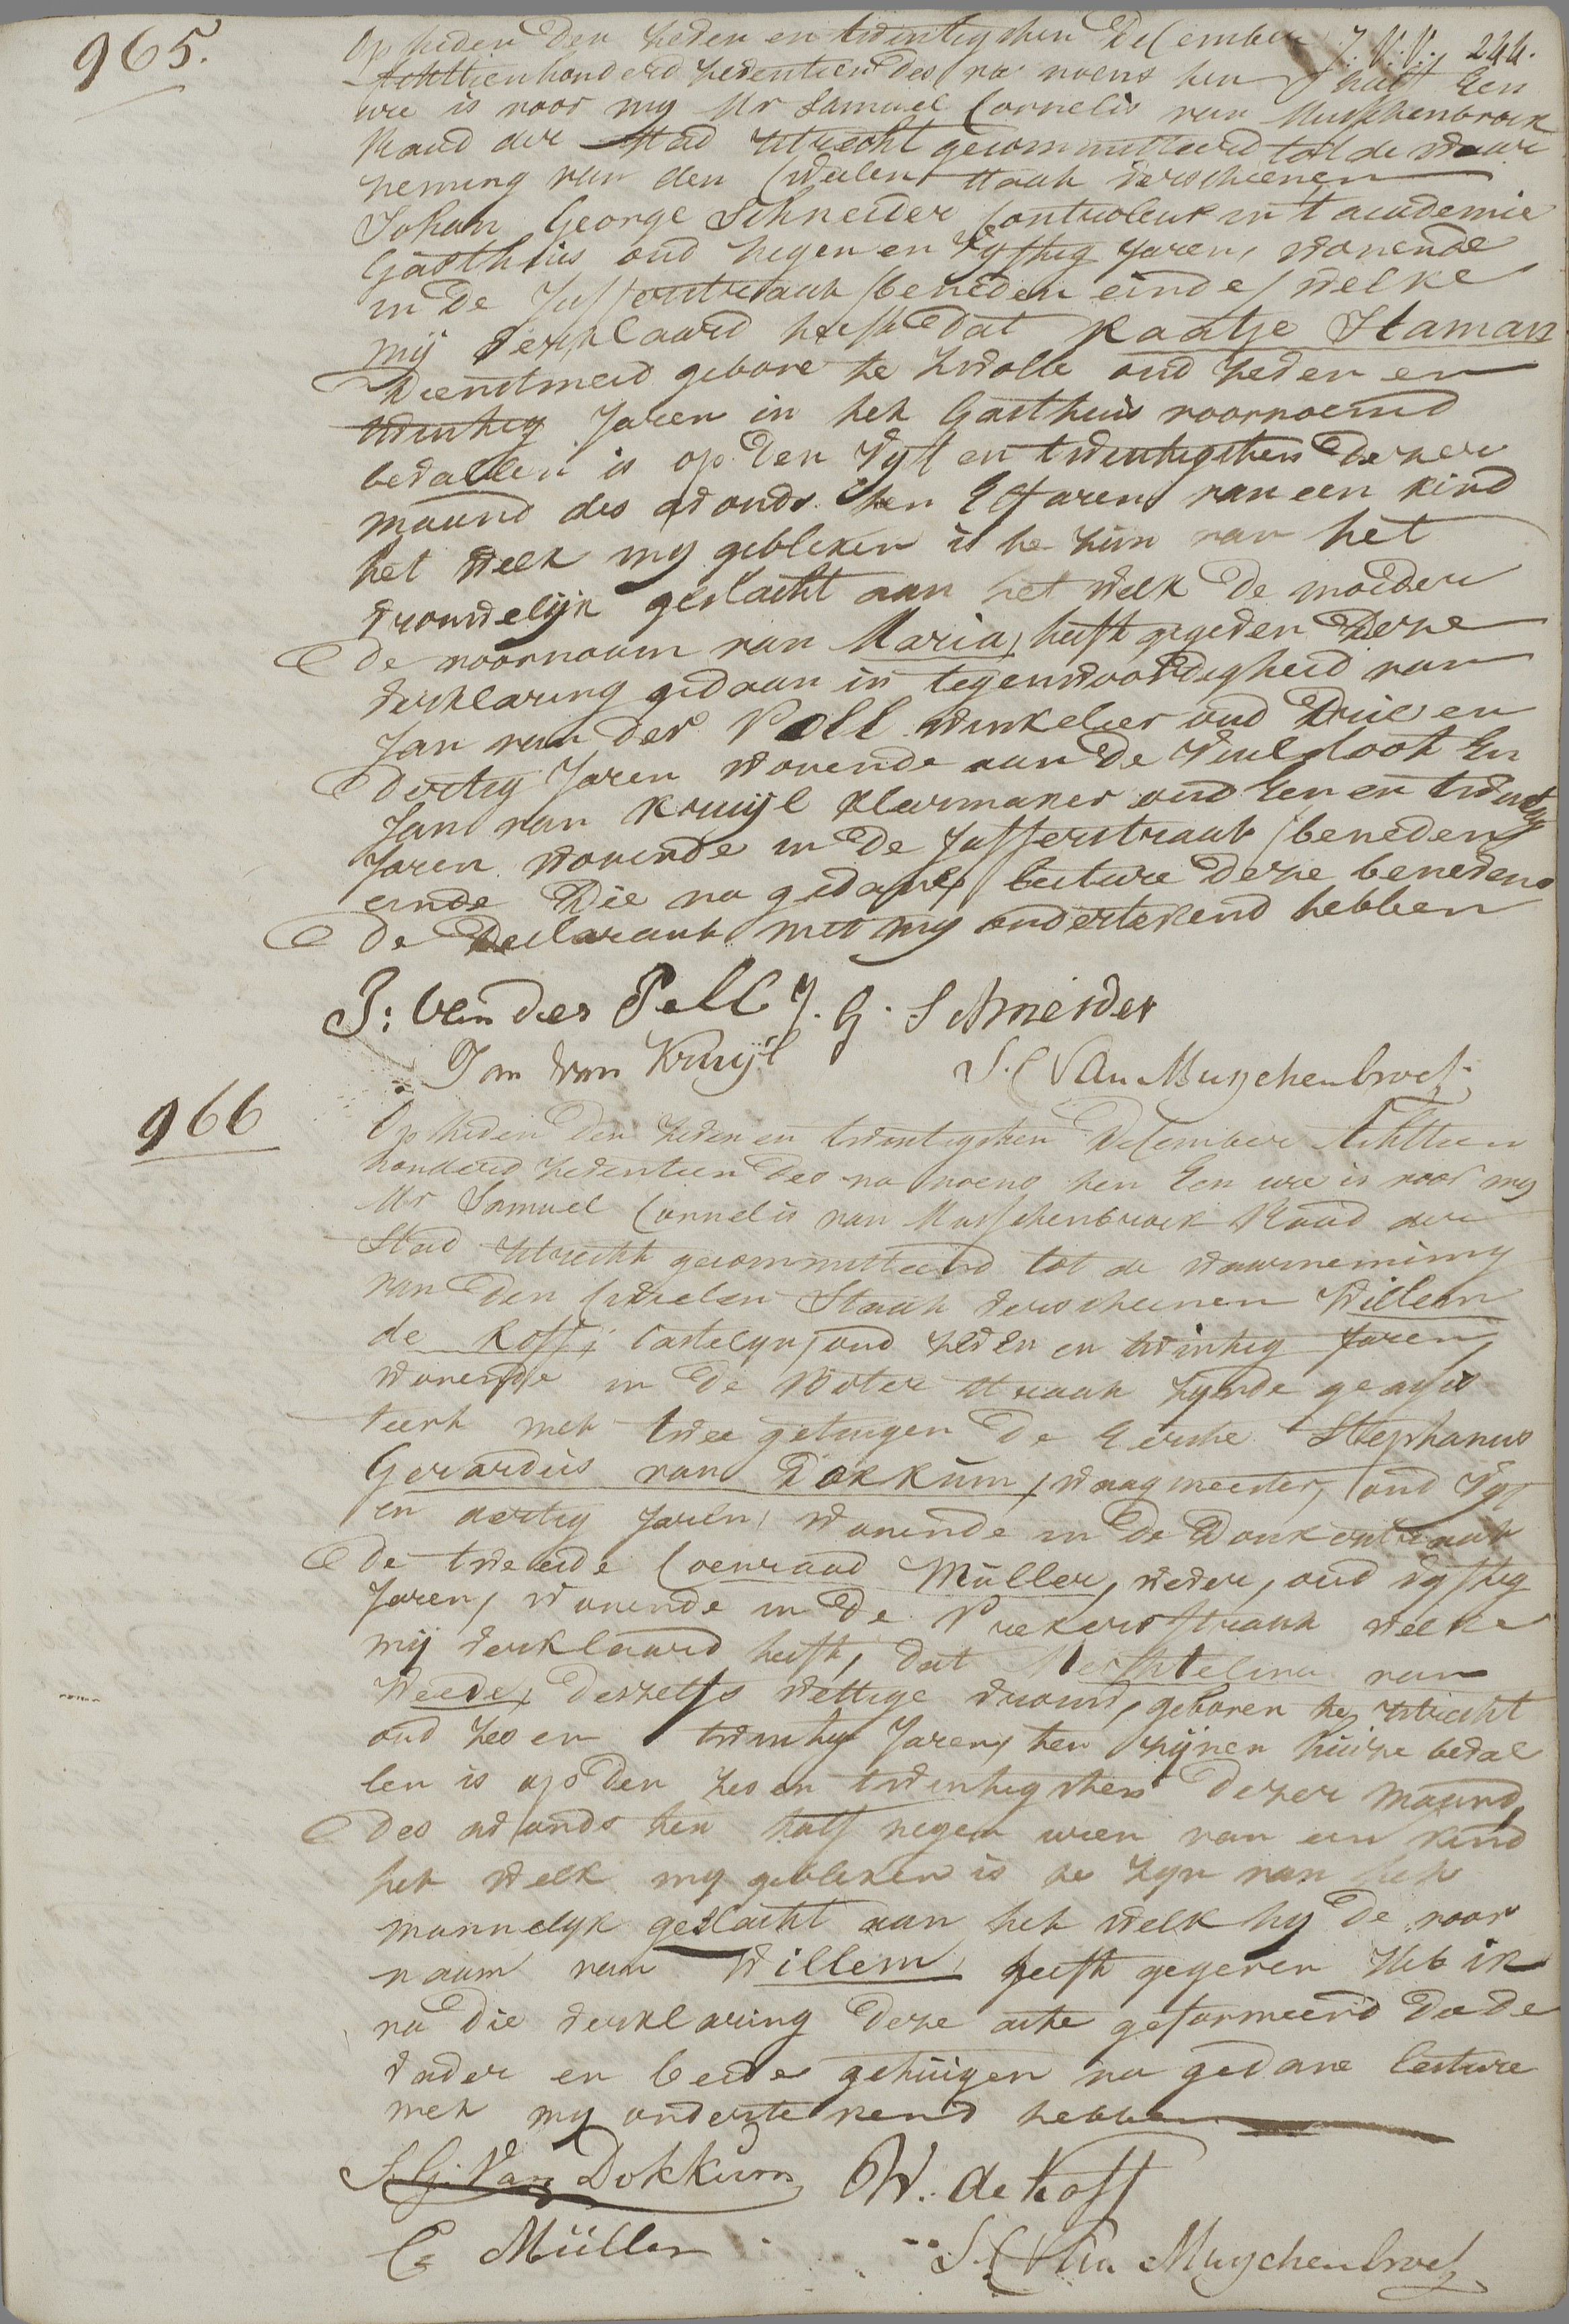 965.
J. V. V. 244.
Op heden den zeven en twintigsten December
Achttienhonderd zeventien des na noens ten half Een
ure is voor mij Mr Samuel Cornelis van Musschenbroek
Raad der Stad Utrecht gecommitteerd tot de waar
neming van den Civielen Staat verschenen
Johan George Schneider Controleur in 't academie
Gasthuis oud negen en vyftig Jaren, wonende
in de Jufferstraat (beneden einde) welke
mij verklaard heeft dat Kaatje Staman
Dienstmeid gebore te Zwolle oud zeven en
twintig Jaren in het Gasthuis voornoemd
bevallen is op den vyf en twintigsten dezer
maand des avonds ten Elf uren van een kind
het welk my gebleken is te zijn van het
vrouwelijk geslacht aan het welk de moeder
de voornaam van Maria, heeft gegeven Deze
verklaring gedaan in tegenwoordigheid van
Jan van der Poll winkelier oud Drie en
dertig Jaren wonende aan de Vuilsloot En
Jan van Kruijl kleermaker oud Een en twintig
Jaren wonende in de Jufferstraat (beneden
einde Die na gedane lecture deze benevens
de Declarant met my ondertekend hebben
J: van der Poll J. G. Schneider
Jan van Kruyl S. C. Van Musschenbroek
966
Op heden den zeven en twintigsten December Achttien
honderd zeventien des na noens ten Een ure is voor my
Mr Samuel Cornelis van Musschenbroek Raad der
Stad Utrecht gecommitteerd tot de waarneming
van den Civielen Staat verschenen Willem
de Koff, Castelyn, oud zeven en twintig Jaren,
wonende in de Boter straat zynde geassis
teert met twee getuigen de Eerste Stephanus
Gerardus van Dokkum, waagmeester, oud vyf
en dertig Jaren, wonende in de Donkerstraat
de tweede Coenraad Müller, wever, oud vyftig
Jaren, wonende in de Prekerstraat welke
mij verklaard heeft, dat Mechtelina van
Weede, deszelfs wettige vrouw, geboren te Utrecht
oud zes en twintig Jaren, ten zijnen huize beval
len is op den zes en twintigsten dezer maand
des avonds ten half negen uren van een kind
het welk my gebleken is te zyn van het
mannelyk geslacht aan het welk hy de voor
naam van Willem, heeft gegeven Heb ik
na die verklaring deze acte geformeerd die de
vader en beide getuigen na gedane lecture
met my ondertekend hebben
S. G. Van Dokkum W. de Koff
C. Müller S. C. Van Musschenbroek